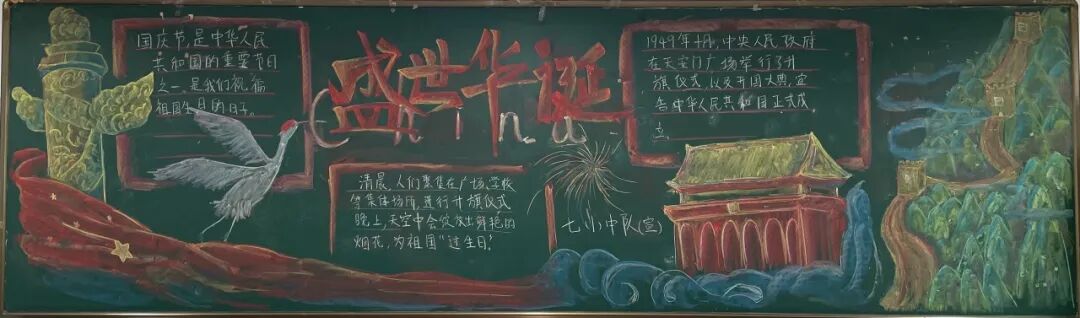 国庆节,是中华人民
共和国的重要节日
之一,是我们祝福
祖国生日的日子。
盛世华诞
China
清晨,人们聚集在广场、学校
等集体场所,进行升旗仪式
晚上,天空中会绽放出鲜艳的
烟花,为祖国“过生日”
1949年十月,中央人民政府
在天安门广场举行了升
旗仪式,以及开国大典,宣
告中华人民共和国正式成
立
七(1)中队(宣)